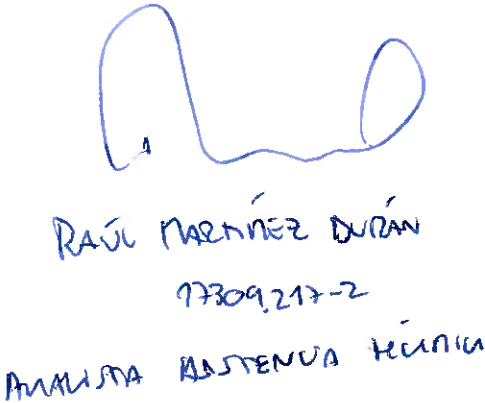 RAÚL MARTÍNEZ DURÁN
17309.217-2
ANALISTA ASISTENCIA TÉCNICA